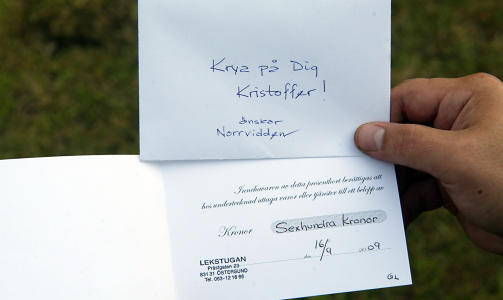 Krya på Dig
Kristoffer!
önskar
Norrvidden
Innehavaren av detta presentkort berättigas att
hos undertecknad uttaga varor eller tjänster till ett belopp av
Kronor Sexhundra Kronor
den 16/9 2009
LEKSTUGAN
Prästgatan 23
831 31 ÖSTERSUND
Tel. 063-12 16 66
GL